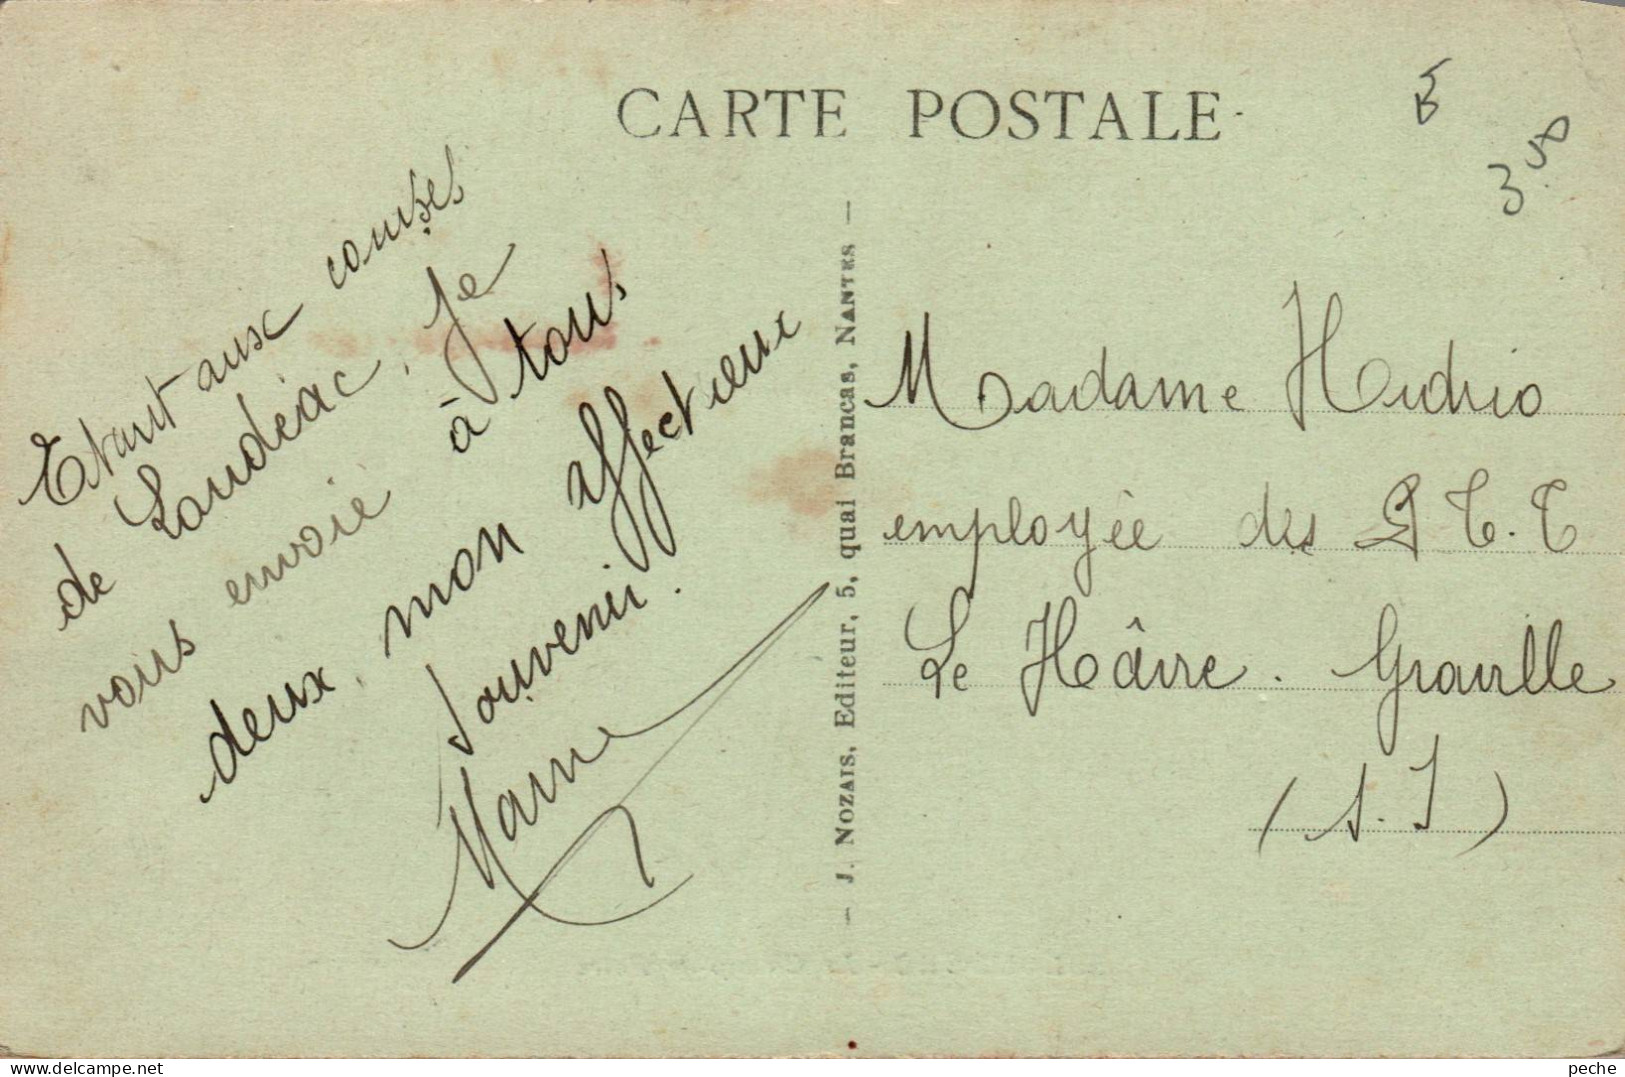 CARTE POSTALE
3.00
Etant aux courses
de Loudéac, je
vous envoie à tous
deux, mon affectueux
Souvenir.
J. NOZAIS, Editeur, 5, quai Brancas, NANTES
Madame Hudrio
employée des P.T.T
Le Hâvre. Graville
(S.I)
peche